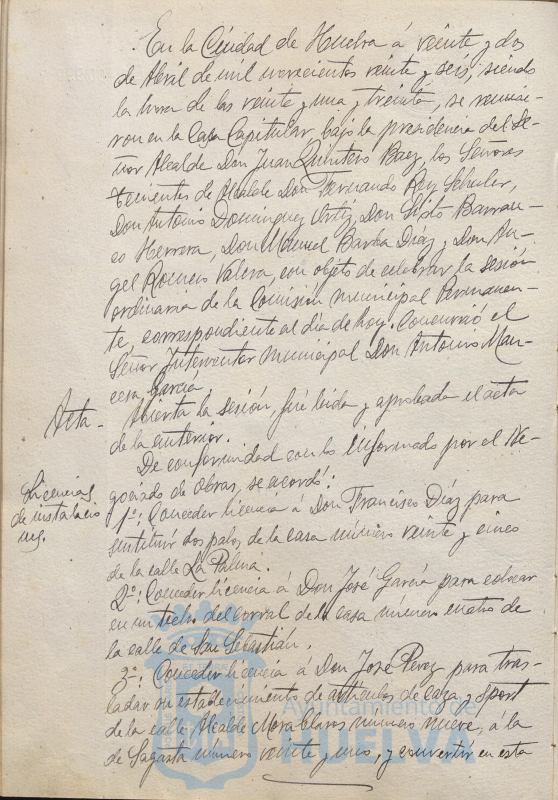 En la Ciudad de Huelva á veinte y dos
de Abril de mil novecientos veinte y seis, siendo
la hora de las veinte y una y treinta, se reunie-
ron en la Casa Capitular, bajo la presidencia del Se-
ñor Alcalde Don Juan Quintero Baez, los Señores
tenientes de Alcalde Don Fernando Rey Schuler,
Don Antonio Dominguez Ortiz, Don Sixto Barran-
co Herrera, Don Manuel Barba Díaz y Don An-
gel Romero Valera, con objeto de celebrar la sesión
ordinaria de la Comisión municipal Permanen-
te, correspondiente al dia de hoy. Concurrió el
Señor Interventor municipal Don Antonio Man-
cera Garcia.
Acta.- Abierta la sesión, fué leida y aprobada el acta
de la anterior.
Licencias
de instalacio
nes.
De conformidad con lo informado por el Ne-
gociado de Obras, se acordó:
1º: Conceder licencia á Don Francisco Díaz para
sustituir dos palos de la casa número veinte y cinco
de la calle La Palma.
2º: Conceder licencia á Don José García para colocar
en un techo del corral de la casa número cuatro de
la calle de San Sebastián.
3º: Conceder licencia á Don José Perez para tras-
ladar su establecimiento de artículos de caza y Sport
de la calle Alcalde Mora Claros número nueve, á la
de Sagasta número veinte y uno, y convertir en esta
Ayuntamiento de
HUELVA